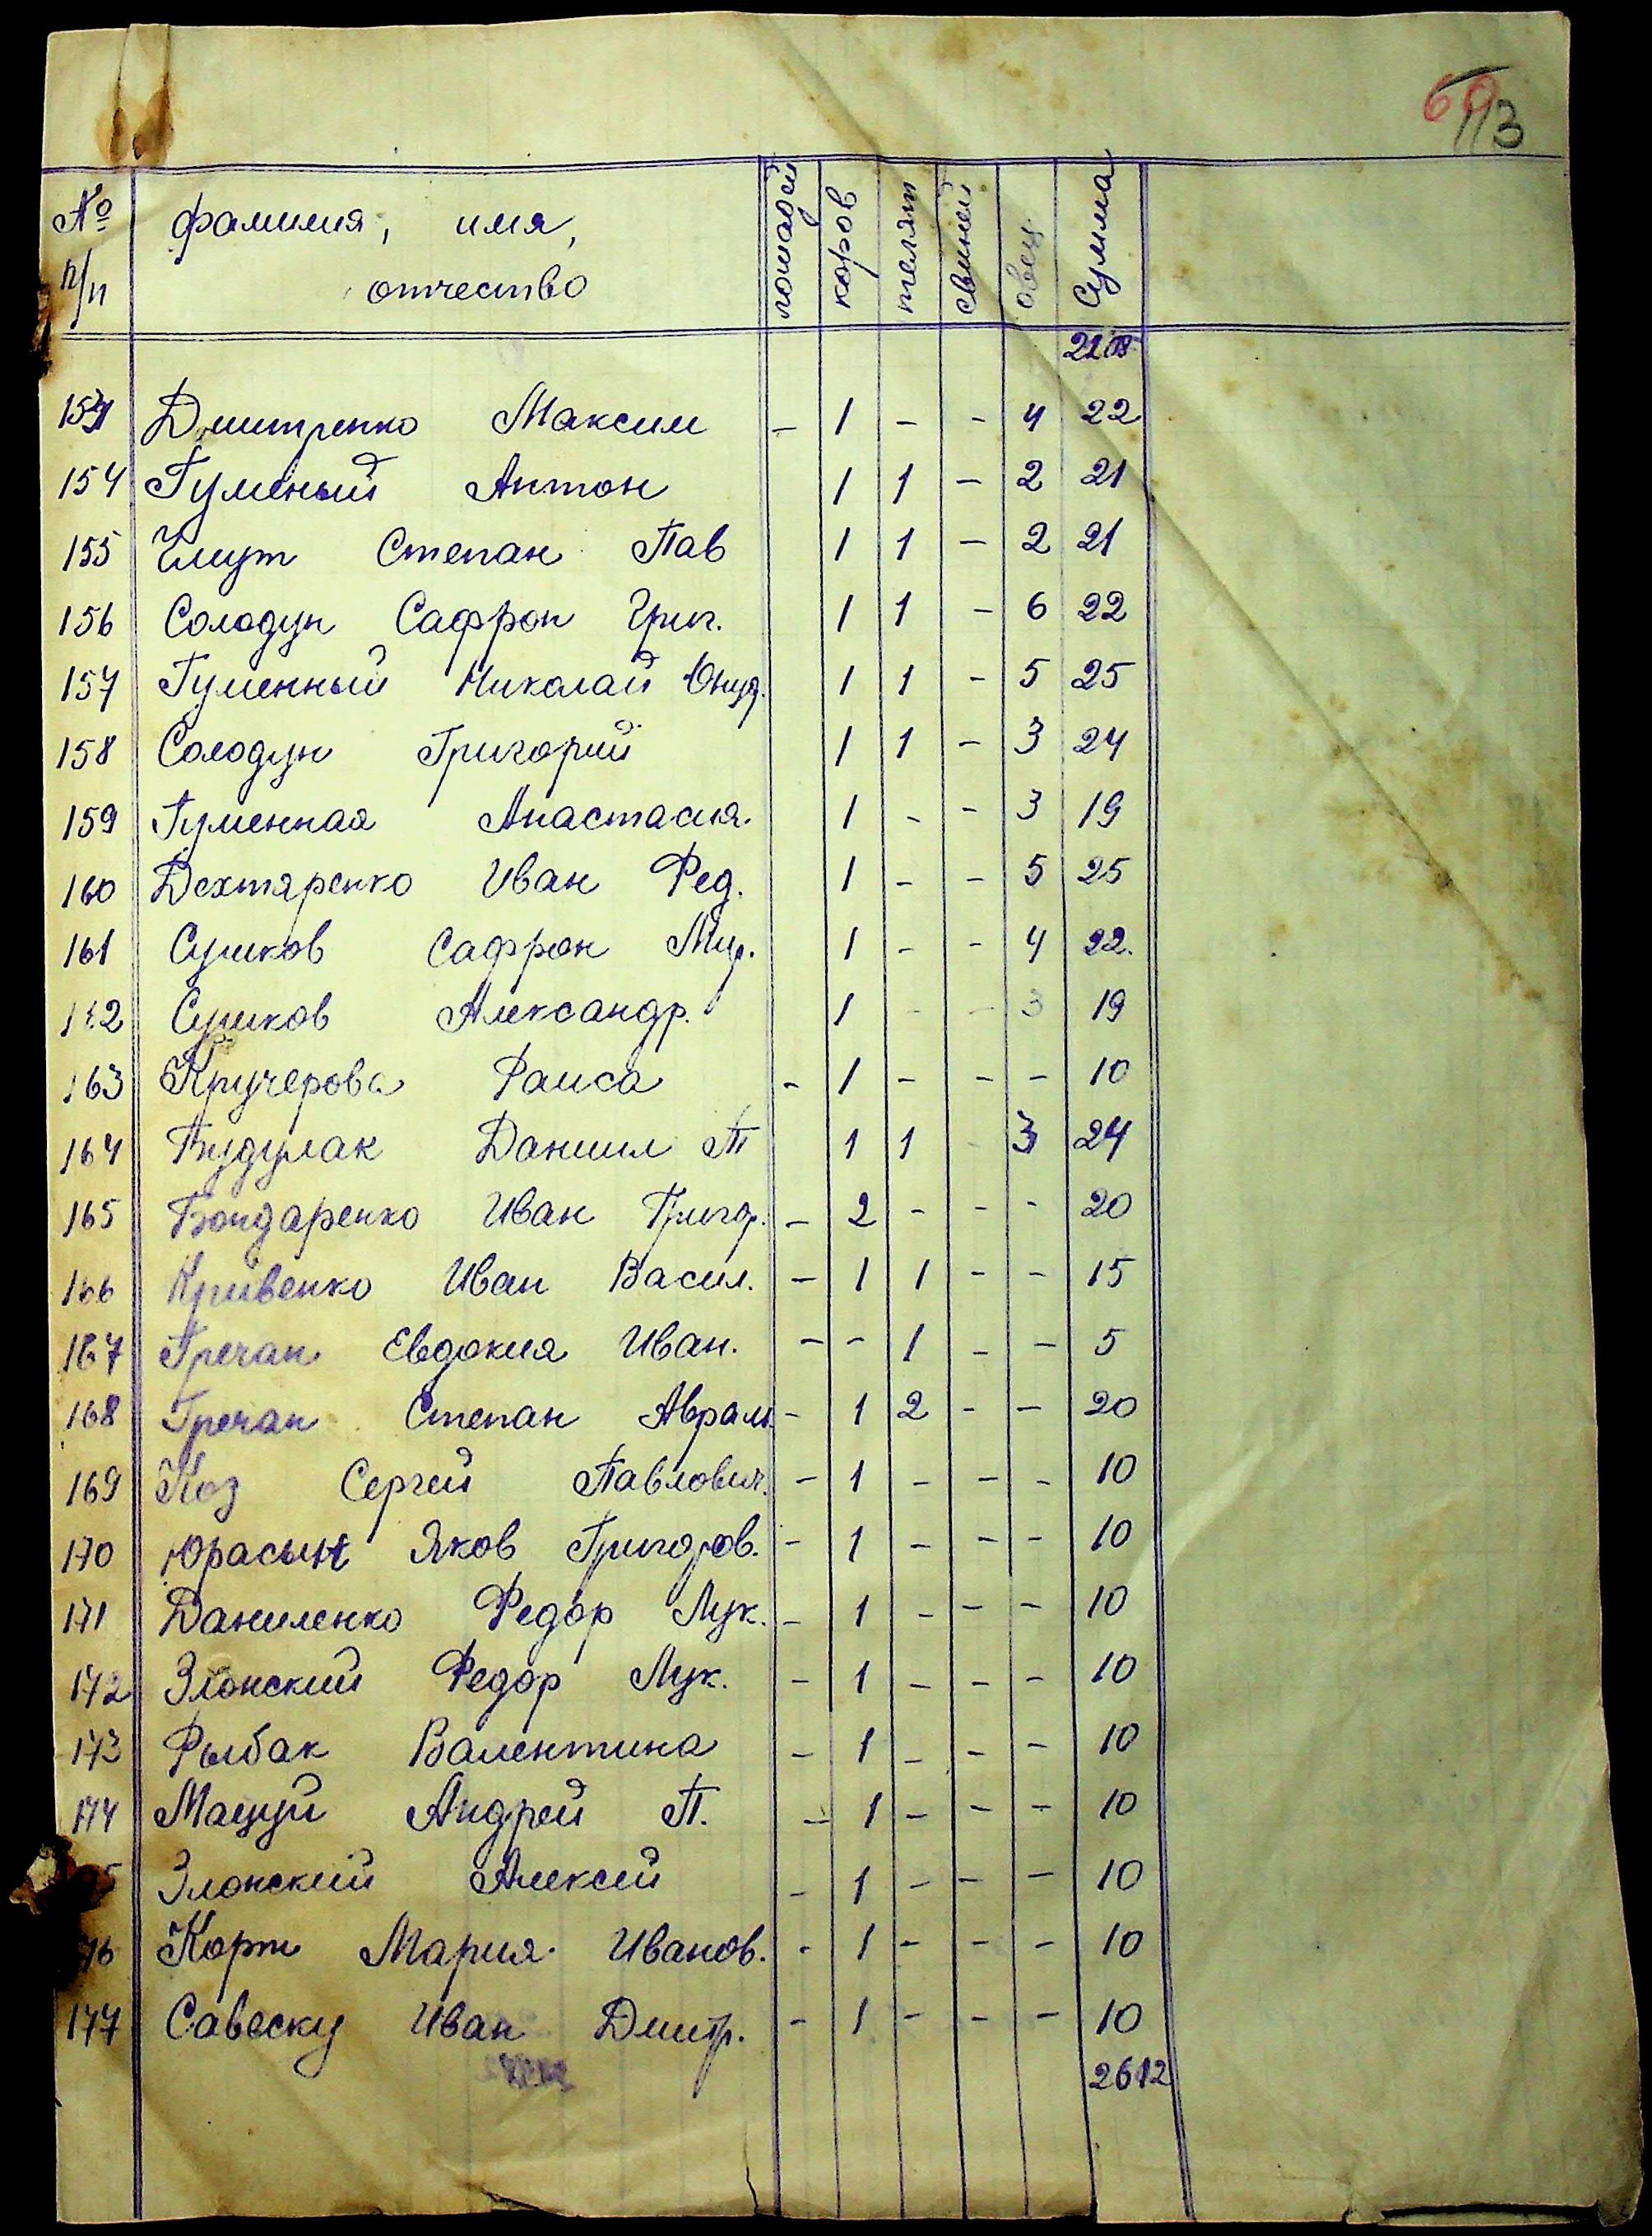 113
№ п/п фамилия, имя, отчество лошадей коров телят свиней овец Сумма
153 Дмитренко Максим – 1 – – 4 22
154 Гуменый Антон 1 1 – 2 21
155 Чмут Степан Пав 1 1 – 2 21
156 Солодун Сафрон Григ. 1 1 – 6 22
157 Гуменный Николай 1 1 – 5 25
158 Солодун Григорий 1 1 – 3 24
159 Гуменная Анастасия. 1 – – 3 19
160 Дехтяренко Иван Фед. 1 – – 5 25
161 Сушков Сафрон 1 – – 4 22.
162 Сушков Александр. 1 – – 3 19
163 Кручерова Раиса – 1 – – – 10
164 Будулак Даниил П 1 1 – 3 24
165 Бондаренко Иван Григор. – 2 – – – 20
166 Кривенко Иван Васил. – 1 1 – – 15
167 Гречан Евдокия Иван. – – 1 – – 5
168 Гречан Степан Аврам – 1 2 – – 20
169 Коз Сергей Павлович. – 1 – – – 10
170 Юрасын Яков Григоров. – 1 – – – 10
171 Даниленко Федор Лук. – 1 – – – 10
172 Злонский Федор Лук. – 1 – – – 10
173 Рыбак Валентина – 1 – – – 10
174 Мацуй Андрей П. – 1 – – – 10
5 Злонский Алексей – 1 – – – 10
76 Корт Мария Иванов. – 1 – – – 10
177 Савеску Иван Дмитр. – 1 – – – 10
2612